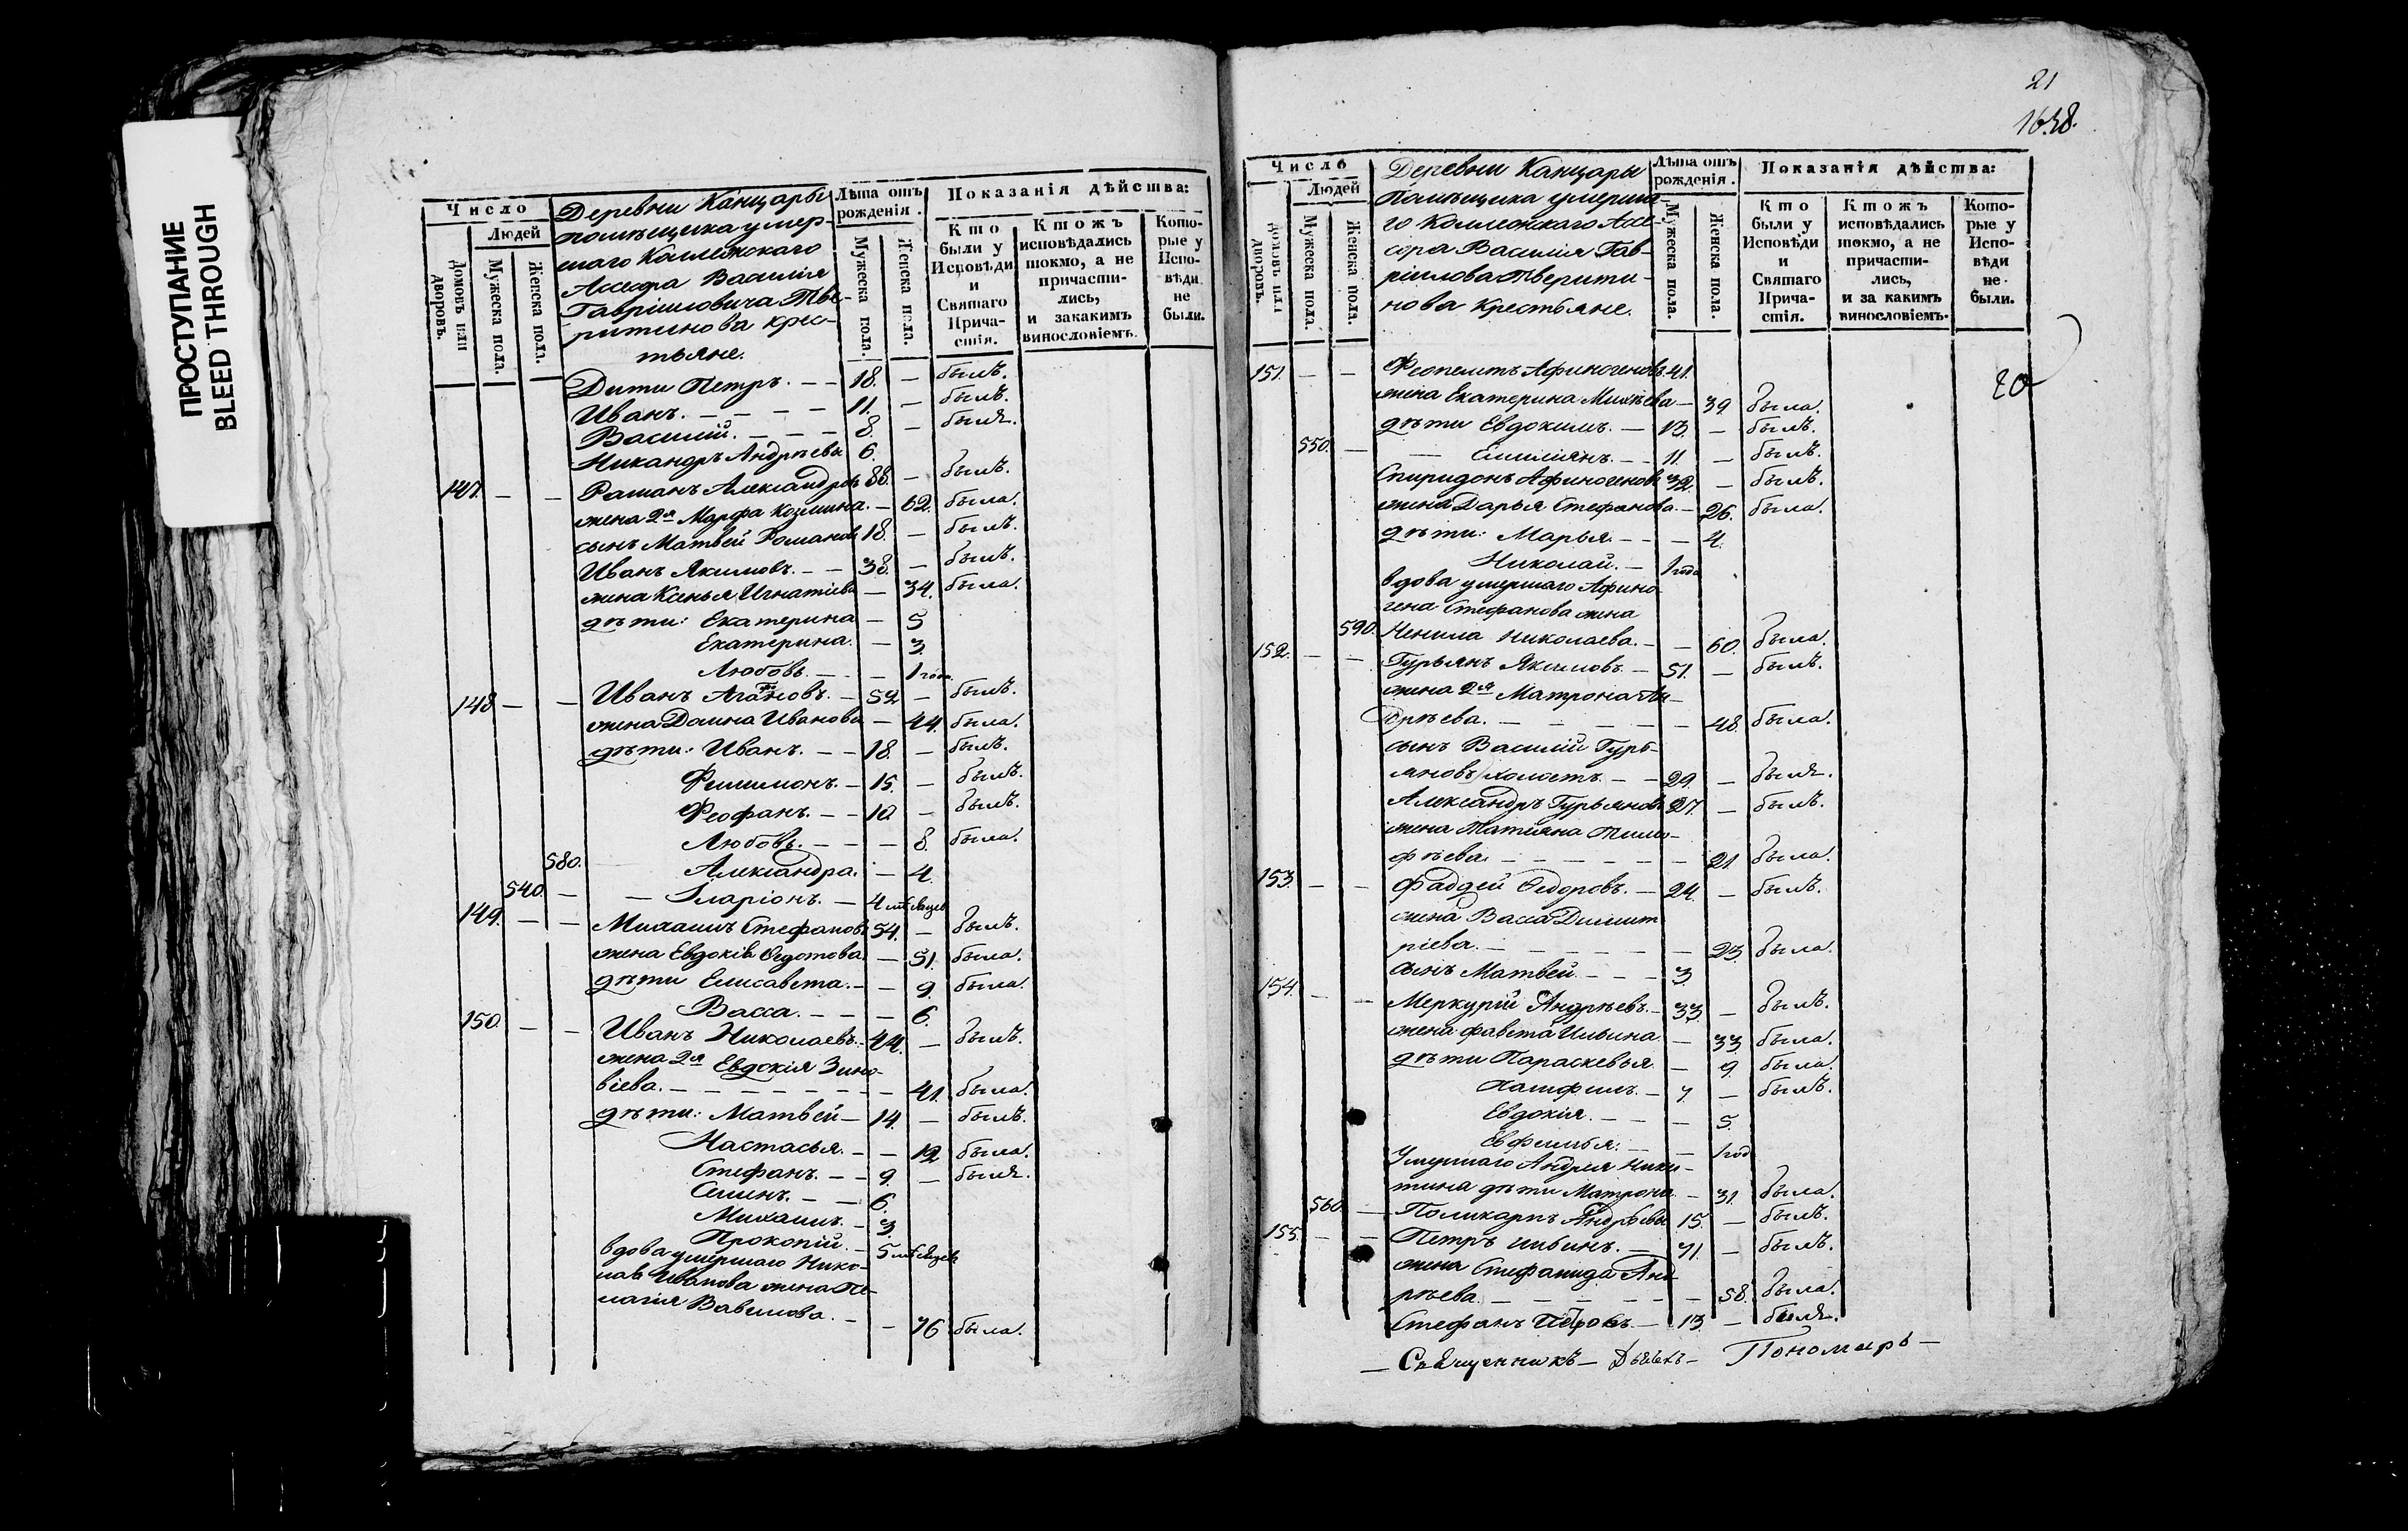 ПРОСТУПАНИЕ
BLEED THROUGH
Число
Людей
Домовъ или дворовъ.
Мужеска пола.
Женска пола.
Деревни Канцары
помѣщика умер-
шаго Коллежскаго
Ассесора Василія
Гавріиловича Тве-
ритинова крес-
тьяне.
Лѣта отъ рожденія.
Мужеска пола.
Женска пола.
Показанія дѣйства:
Кто были у Исповѣди и Святаго Причастія.
Ктожъ исповѣдались токмо, а не причастились, и закакимъ винословіемъ.
Которые у Исповѣди не были.
Дѣти Петръ. — — 18. — былъ.
Иванъ. — — — — 11. — былъ.
Василій. — — — 8. — былъ.
Никандръ Андрѣевы 6.
147. — — Раманъ Александровъ 88. — былъ.
жена 2я Марфа Козмина. — 62. была.
сынъ Матвей Романовъ 18. — былъ.
Иванъ Якимовъ. — — 38. — былъ.
жена Ксенья Игнатіева — 34. была.
дѣти: Екатерина — 5
Екатерина. — 3.
Любовь. — — — 1 года.
148 — — Иванъ — 52 — былъ.
жена Домна Иванова — 44. была.
дѣти: Иванъ. — — 18. — былъ.
Филимонъ. — 15. — былъ.
Феофанъ. — — 10 — былъ.
Любовь. — — — 8. была.
580. Александра. — 4.
540. — — Іларіонъ. — 4 мѣсяцев
149. — — Михаилъ Стефановъ 54. — былъ.
жена Евдокія Ѳедотова. — 51. была.
дѣти Елисавета. — — 9. была.
Васса. — — — 6.
150. — — Иванъ Николаевъ. — 44. — былъ.
жена 2я Евдокія Зино-
віева. — — — — — — 41. была.
дѣти: Матвей — 14. — былъ.
Настасья. — — 12 была.
Стефанъ. — — 9. — былъ.
Семенъ. — — 6.
Михаилъ. — 3.
Прокопій. — 5 мѣсяцев
вдова умершаго Нико-
лая Иванова жена Пе-
лагія Вавилова. — — 76 была.
21
1638.
Число
Людей
домовъ или дворовъ.
Мужеска пола.
Женска пола.
Деревни Канцары
Помѣщика умерша-
го Коллежскаго Ассе-
сора Василія Гав-
ріилова Тверити-
нова Крестьяне.
Лѣта отъ рожденія.
Мужеска пола.
Женска пола.
Показанія дѣйства:
Кто были у Исповѣди и Святаго Причастія.
Ктожъ исповѣдались токмо, а не причастились, и за какимъ винословіемъ.
Которые у Исповѣди не были.
151. — — Феопемтъ Афиногеновъ 41. 20
жена Екатерина Михѣева — 39 была.
дѣти Евдокимъ. — 13. — былъ.
550. — — Емиліянъ. — — 11. — былъ.
Спиридонъ Афиногеновъ 32. — былъ.
жена Дарья Стефанова. — 26. была.
дѣти: Марья. — — — 4.
Николай. — 1 года
вдова умершаго Афино-
гена Стефанова жена
590. Ненила Николаева. — — 60. была.
152. — — Гурьянъ Якимовъ. — 51. — былъ.
жена 2я Матрона Ан-
дрѣева. — — — — — — 48. была.
сынъ Василій Гурь-
яновъ холостъ. — — 29. — былъ.
Александръ Гурьяновъ 27. — былъ.
жена Татіяна Тимо-
фѣева. — — — — — — 21 была.
153. — — Фаддей Ѳедоровъ. — 24. — былъ.
жена Васса Димит-
ріева. — — — — — — 23. была.
сынъ Матвей — — — 3.
154. — — Меркурій Андрѣевъ. — 33. — былъ.
жена Фавста Ильина — 33 была.
дѣти Параскевья — 9. была.
Памфилъ. — 7. — былъ.
Евдокія. — — — 5.
Евфимья. — — — 1 год
Умершаго Андрея Ники-
тина дѣти Матрона. — 31. была.
560. — Поликарпъ Андрѣевы 15. — былъ.
155. — — Петръ Ильинъ. — 71. — былъ.
жена Стефанида Анд-
рѣева. — — — — — — 58. была.
Стефанъ Петровъ. — 13. — былъ.
— Священникъ — — Пономарь —